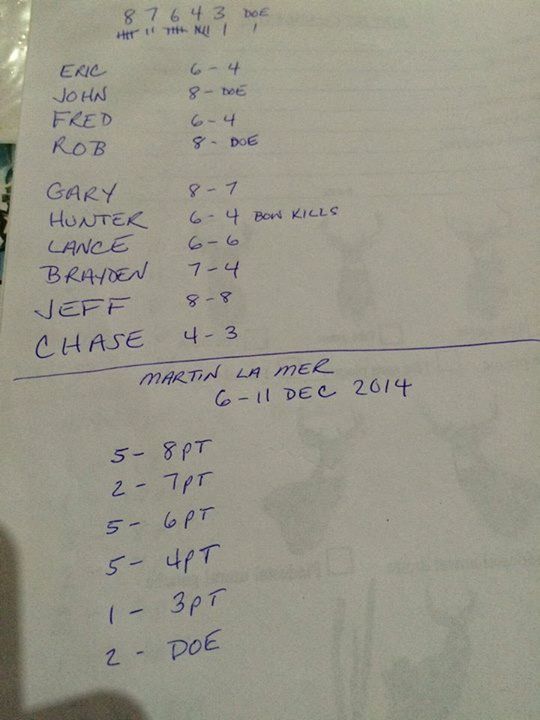 8 7 6 4 3 DOE
ERIC 6-4
JOHN 8-DOE
FRED 6-4
ROB 8-DOE
GARY 8-7
HUNTER 6-4 BOW KILLS
LANCE 6-6
BRAYDEN 7-4
JEFF 8-8
CHASE 4-3
MARTIN LA MER
6-11 DEC 2014
5- 8PT
2- 7PT
5- 6PT
5- 4PT
1- 3PT
2- DOE